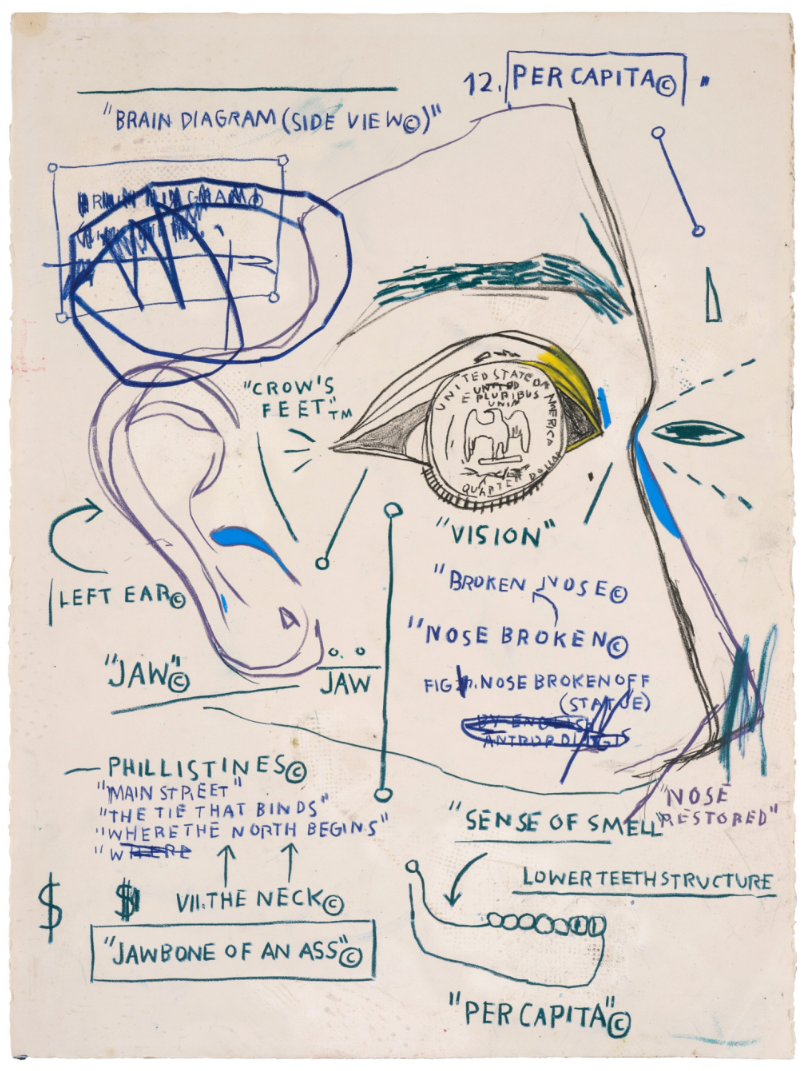 12. PER CAPITA© "
"BRAIN DIAGRAM (SIDE VIEW©)"
"CROW'S
FEET"TM
UNITED STATES OF AMERICA
UNITED
E PLURIBUS
UNUM
QUARTER DOLLAR
"VISION"
LEFT EAR©
"BROKEN NOSE©
"NOSE BROKEN©
"JAW"©
JAW
FIG. NOSE BROKEN OFF
(STATUE)
BY ENGLISH
— PHILLISTINES©
"MAIN STREET"
"THE TIE THAT BINDS"
"WHERE THE NORTH BEGINS"
"WHERE
"NOSE
RESTORED"
"SENSE OF SMELL"
LOWER TEETH STRUCTURE
$ $ VII. THE NECK©
"JAWBONE OF AN ASS"©
"PER CAPITA"©